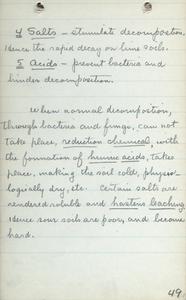 4 Salts - stimulate decomposition.
Hence the rapid decay on lime soils.
5 Acids - prevent bacteria and
hinder decomposition.
When normal decomposition,
through bacteria and fungo, can not
take place, reduction chemical, with
the formation of humic acids, takes
place, making the soil cold, physio-
logically dry, etc. Certain salts are
rendered soluble and hastens leaching.
Hence sour soils are poor, and become
hard.
49